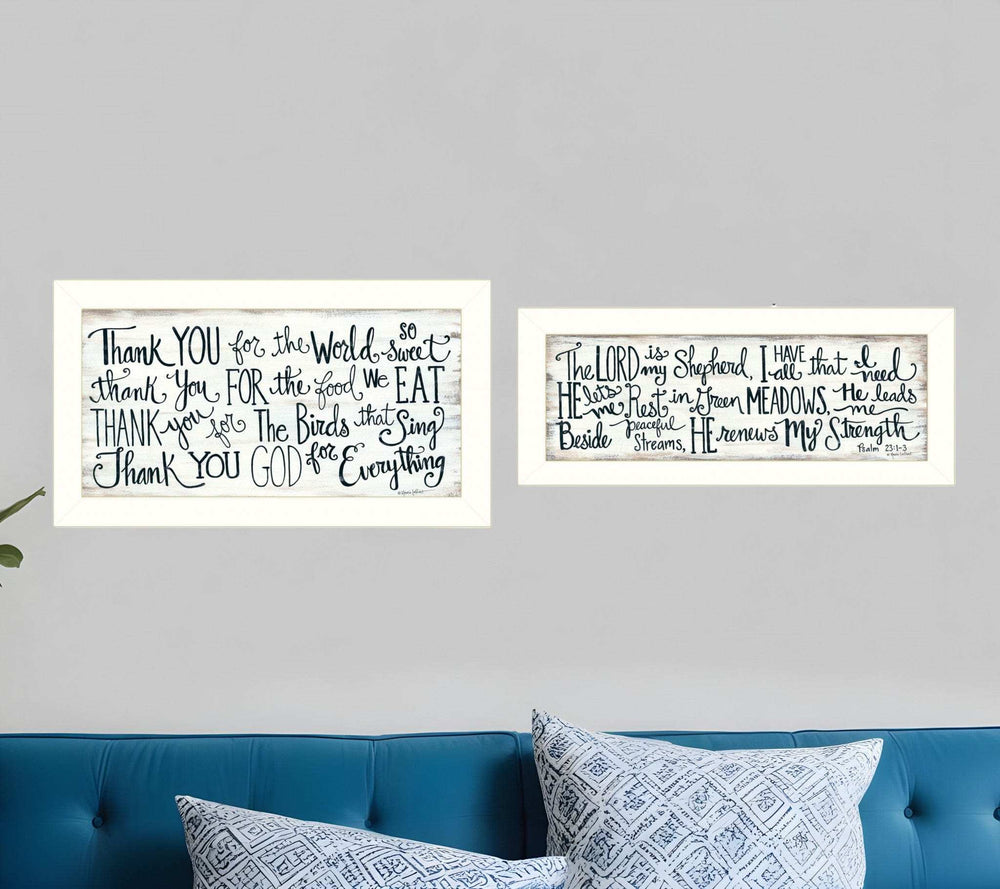 Thank YOU for the World so sweet
thank You FOR the food we EAT
THANK you for The Birds that Sing
Thank YOU GOD for Everything
The LORD is my Shepherd, I HAVE all that I need
HE lets me Rest in Green MEADOWS, He leads me
Beside peaceful Streams, HE renews My Strength
Psalm 23:1-3